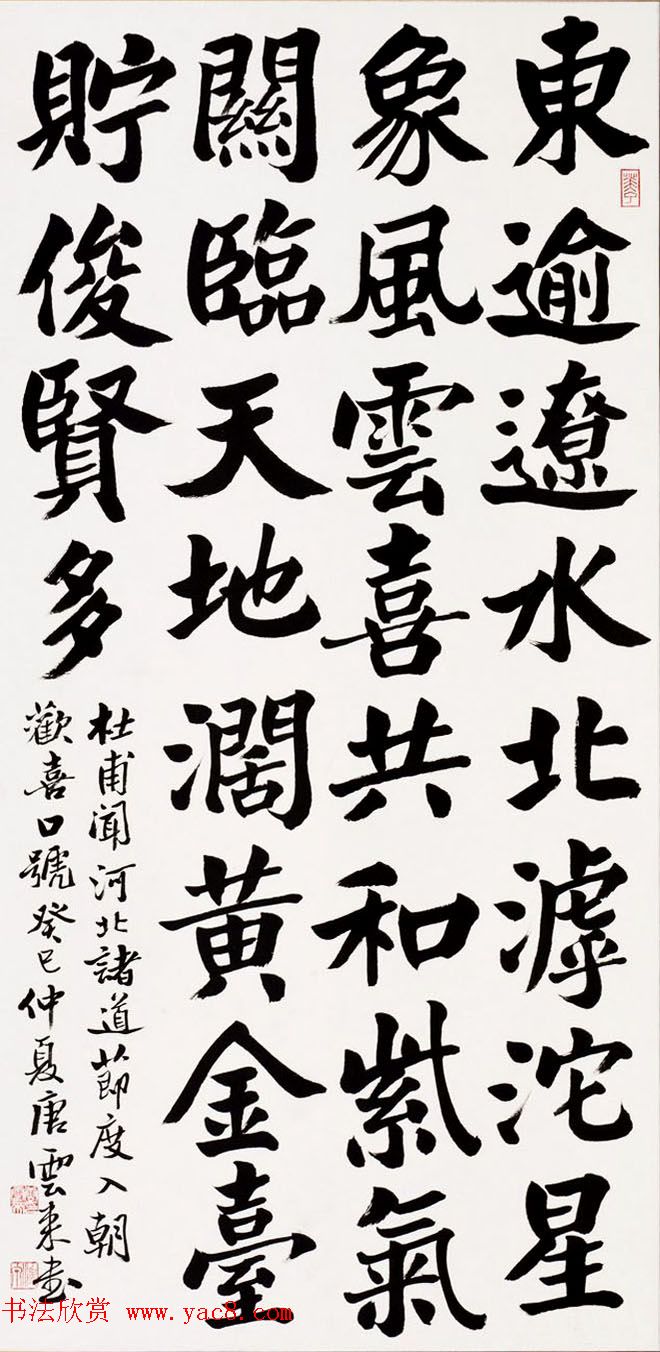 東逾遼水北滹沱星
象風雲喜共和紫氣
關臨天地濶黃金臺
貯俊賢多
杜甫聞河北諸道節度入朝
歡喜口號癸巳仲夏唐雲来書
书法欣赏 www.yac8.com